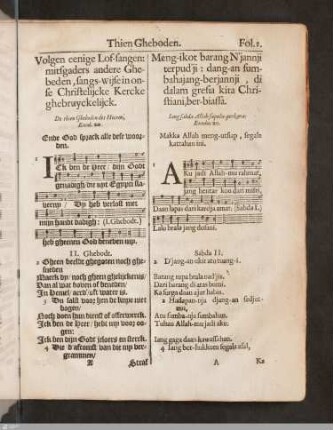 Thien Gheboden.
Fol. 1.
Volgen eenige Lof-sangen:
mitsgaders andere Ghe-
beden, sangs-wijse in on-
se Christelijcke Kercke
ghebruyckelijck.
De thien Gheboden des Heeren,
Exod. 20.
Ende God sprack alle dese woor-
den.
Ick ben de Heer: dijn Godt
ghenadigh die upt Egypti sla-
verny / Dy heb verlost met
mijn handt dadigh: (I. Ghebodt.)
heb gheenen God beneben my.
II. Ghebodt.
Gheen beelde ghegoten noch ghe-
sneden
Maeck dy: noch gheen ghelijckenis/
Van al wat boven of beneden/
In Hemel/ aerd/ oft water is.
3 Du salt voor hen de knyn niet
bugen/
Noch doen hun dienst of offerwerck.
Ick ben de Heer: hebt my voor oo-
gen:
Ick ben dijn Godt jeloers en sterck.
4 Die d'afkomst van die my ver-
grammen/
A
Straf
Meng-ikot barang N'jannji
terpud'ji: dang-an sum-
bahajang-berjannji, di
dalam gresia kita Chri-
stiani, ber-biassa.
Exodus 20.
Makka Allah meng-utsjap, segale
kattahan ini.
Aku jadi Allah-mu rahmat,
jang hentar koo dari mitsir,
Daan lapas dari kareja amat: (Sabda I.
Lulu beala jang dosani.
Sabda II.
2 D'jang-an
Barang rupa beala tud'jis,
Dari barang di atas bomi.
3 Hadapan-nja djang-an sudjut-
mu,
Atu samba-nja sambahan.
Tuhan Allah-mu jadi aku:
Jang gaga daan kawassahan.
4 Jang ber-hukkum segala asal,
A
Ka